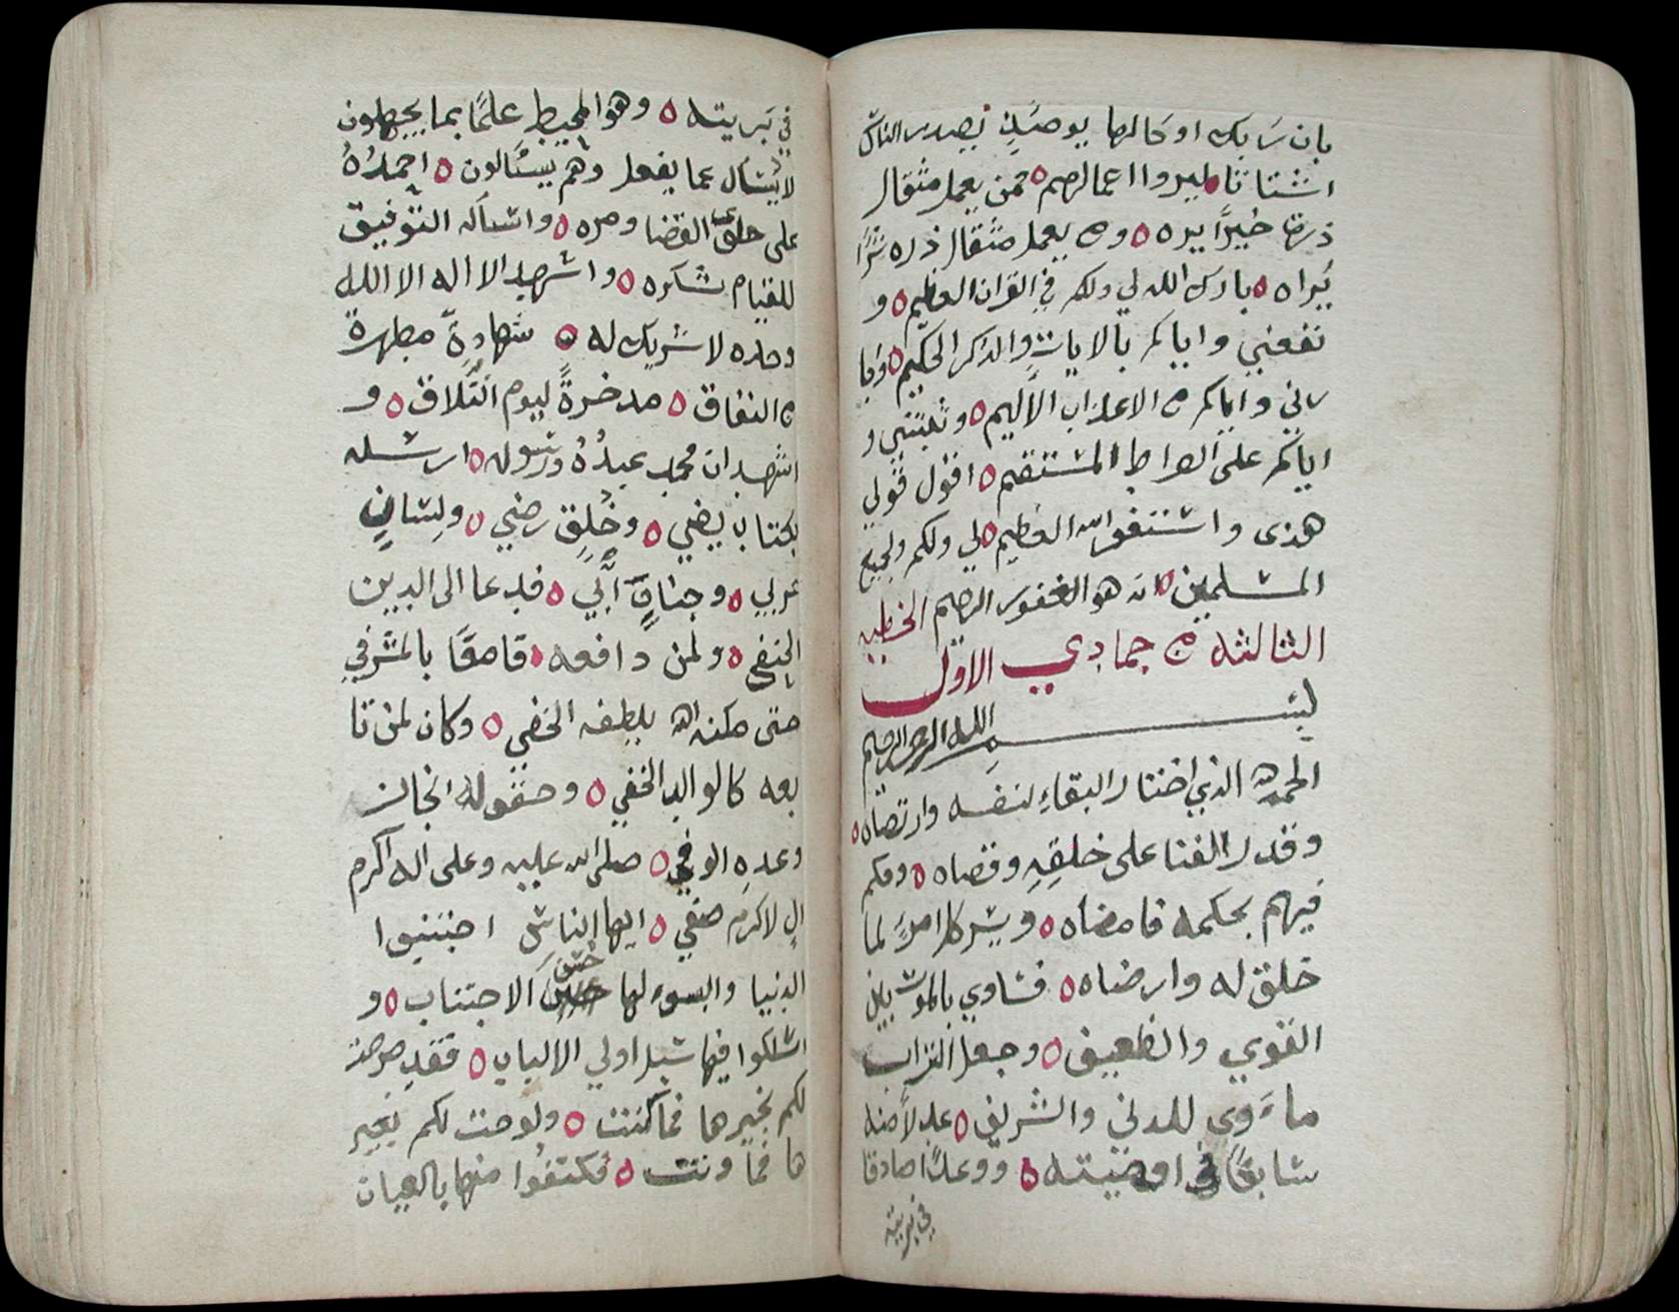 بان ربك اوحالها يوميذٍ يصدر الناس
اشتاتا ليروا اعمالهم ه فمن يعمل مثقال
ذرة خيرًا يره ه ومن يعمل مثقال ذره شرًا
يراه ه بارك الله لي ولكم في القران العظيم ه و
نفعني واياكم بالايات والذكر الحكيم ه واجا
رني واياكم من العذاب الأليم ه وثبتني و
اياكم على الصراط المستقيم ه اقول قولي
هذى واستغفر الله العظيم ه لي ولكم ولجميع
المسلمين ه انه هو الغفور الرحيم الخطبه
الثالثه من جمادي الاول
بسم الله الرحمن الرحيم
الحمد لله الذي اختار البقاء لنفسه وارتضاه ه
وقدر الفنا على خلقه وقضاه ه وحكم
فيهم بحكمه فامضاه ه ويسر كلا امرء لما
خلق له وارضاه ه فساوي بالموت بين
القوي والضعيف ه وجعل التراب
ماءوى للدني والشريف ه عدلاً منه
سابقًا في اقضيته ه ووعدًا صادقا
في بريته
في بريته ه وهو المحيط علمًا بما يجهلون
لا يسأل عما يفعل وهم يسئالون ه احمدهُ
على حلو القضا ومره ه واسأله التوفيق
للقيام بشكره ه واشهد الا اله الا الله
وحده لا شريك له ه شهادةً مطهرة
من النفاق ه مدخرةً ليوم التلاق ه و
اشهد ان محمد عبدُهُ ورسوله ه ارسله
بكتاب يضي ه وخُلقٍ رضي ه ولسانٍ
عربي ه وجنانٍ أبي ه فدعا الى الدين
الحنفي ه ولمن دافعه ه قامعًا بالمشرفي
حتى مكنه الله بلطفه الخفي ه وكان لمن تا
بعه كالوالد الحفي ه وحقق له انجاز
وعده الوفي ه صلى الله عليه وعلى اله اكرم
ال لاكرم صفي ه ايها الناس اجتنبوا
الدنيا والبسوا لها حسن الاجتناب ه و
اسلكوا فيها سبل اولي الالباب ه فقد صرحت
لكم بخبرها فما كننت ه ولوحت لكم بغير
ها فما ونت ه فكتفوا منها بالعيان